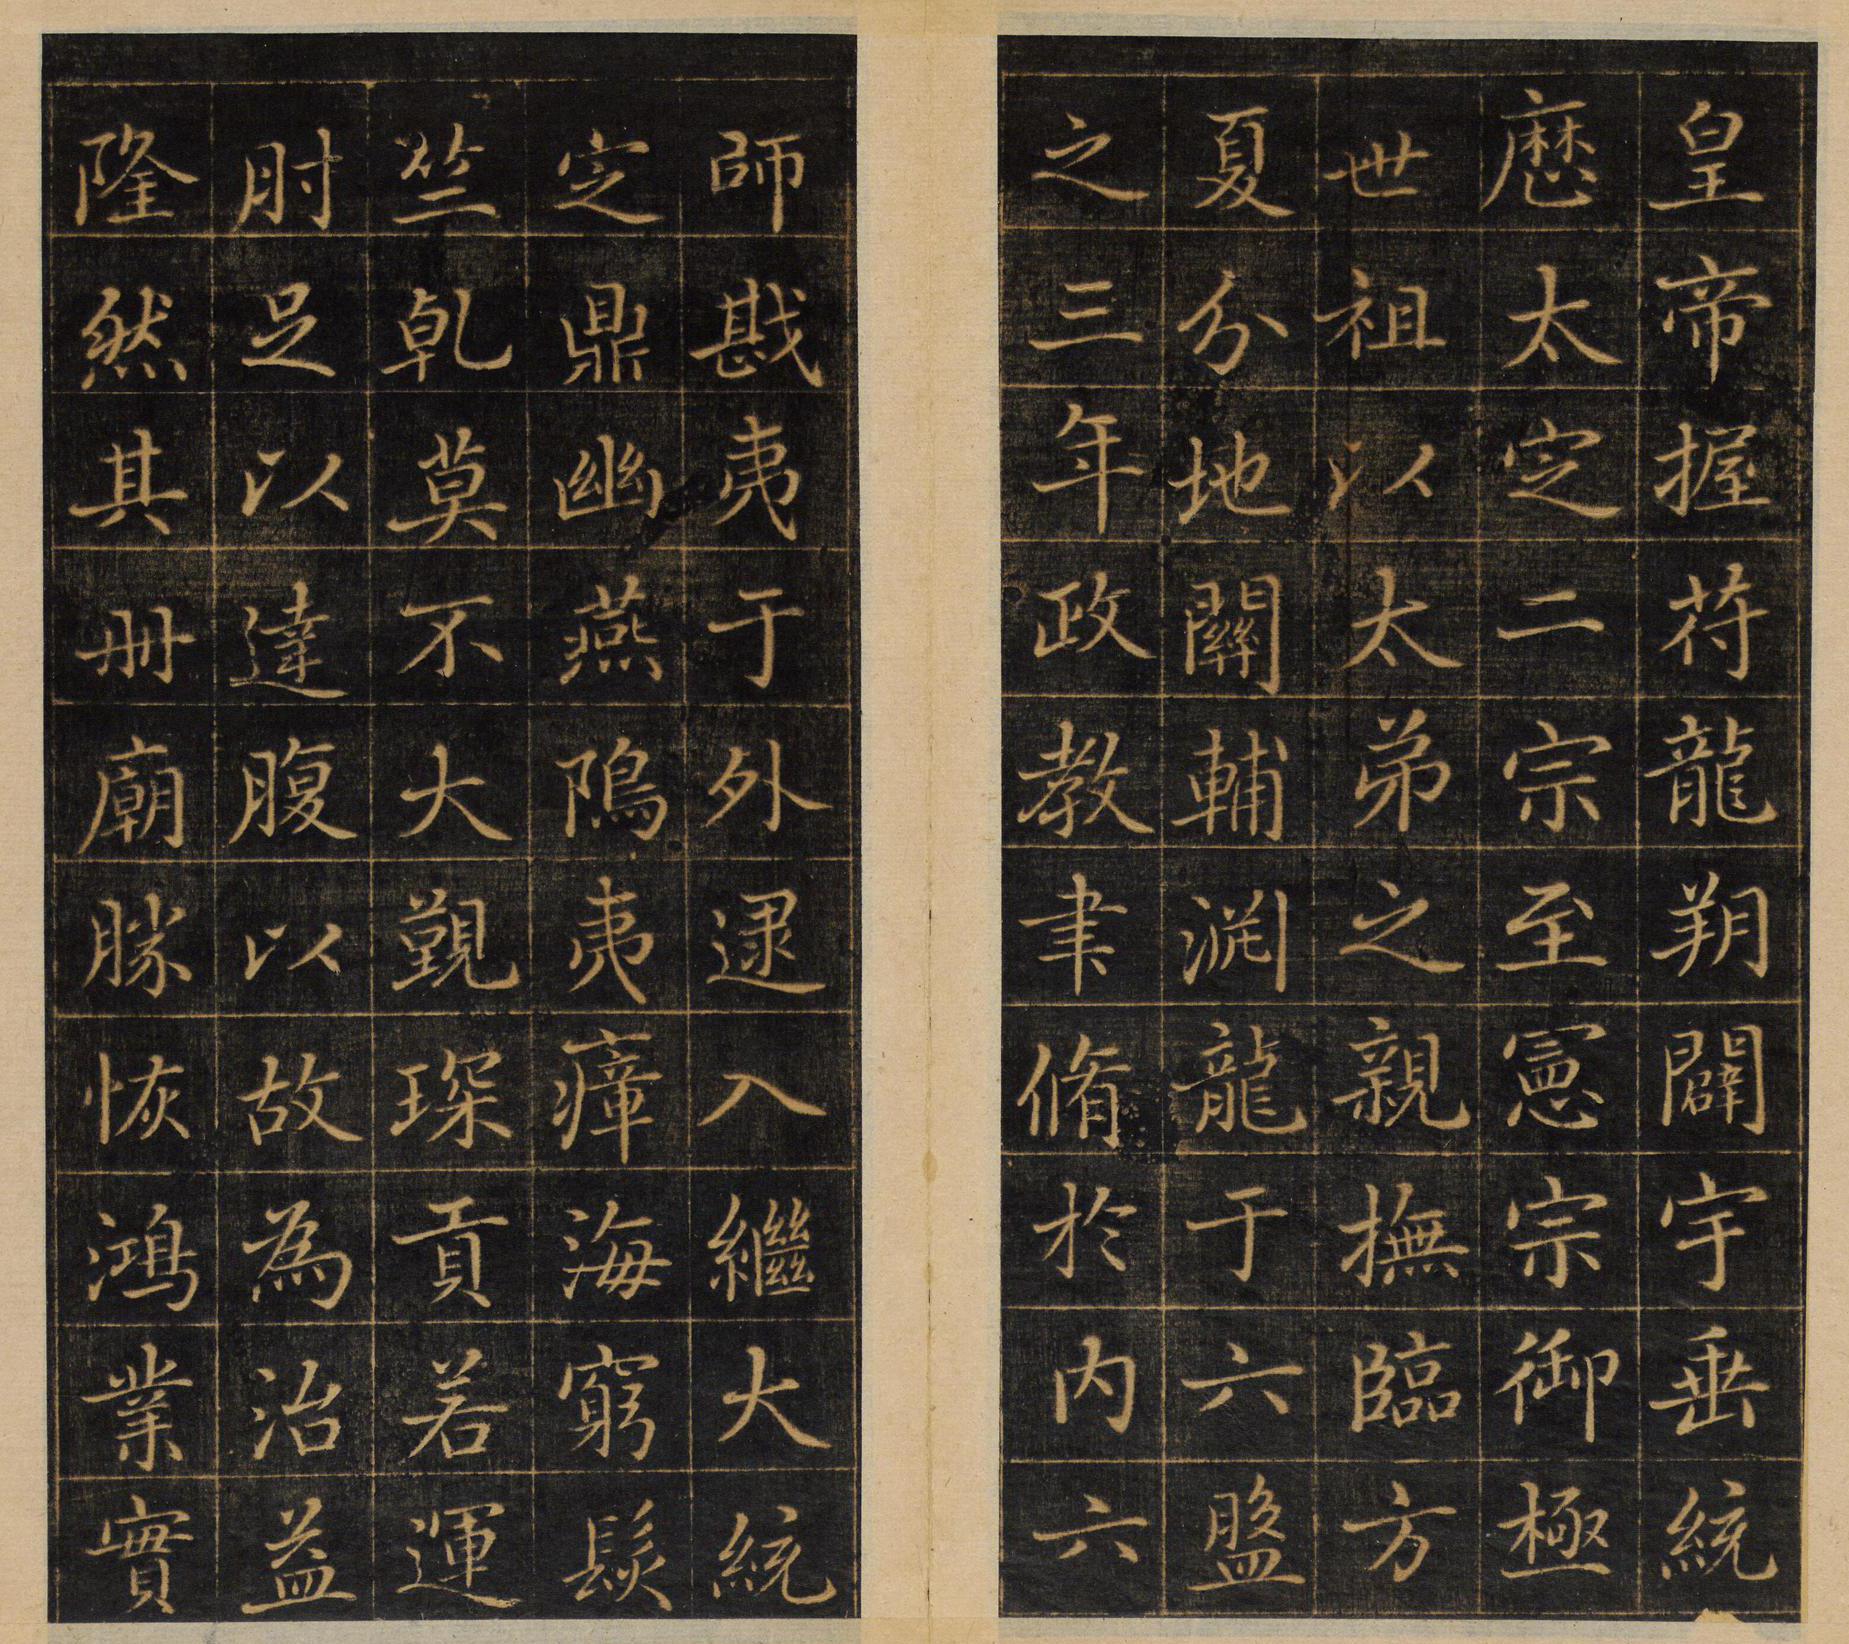 皇帝握苻龍朔闢宇垂統
厯太定二宗至憲宗御極
世祖以太弟之親撫臨方
夏分地關輔淵龍于六盤
之三年政教聿脩於内六
師戡夷于外逮入繼大統
定鼎幽燕隝夷瘴海窮髮
竺乾莫不大覲琛貢若運
肘足以達腹以故為治益
隆然其冊廟勝恢鴻業實